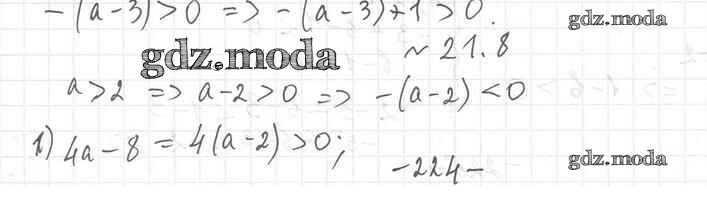 -(a-3)>0 => -(a-3)+1>0.
gdz.moda
~ 21.8
gdz.moda
a>2 => a-2>0 => -(a-2)<0
1) 4a-8=4(a-2)>0;
-224-
gdz.moda